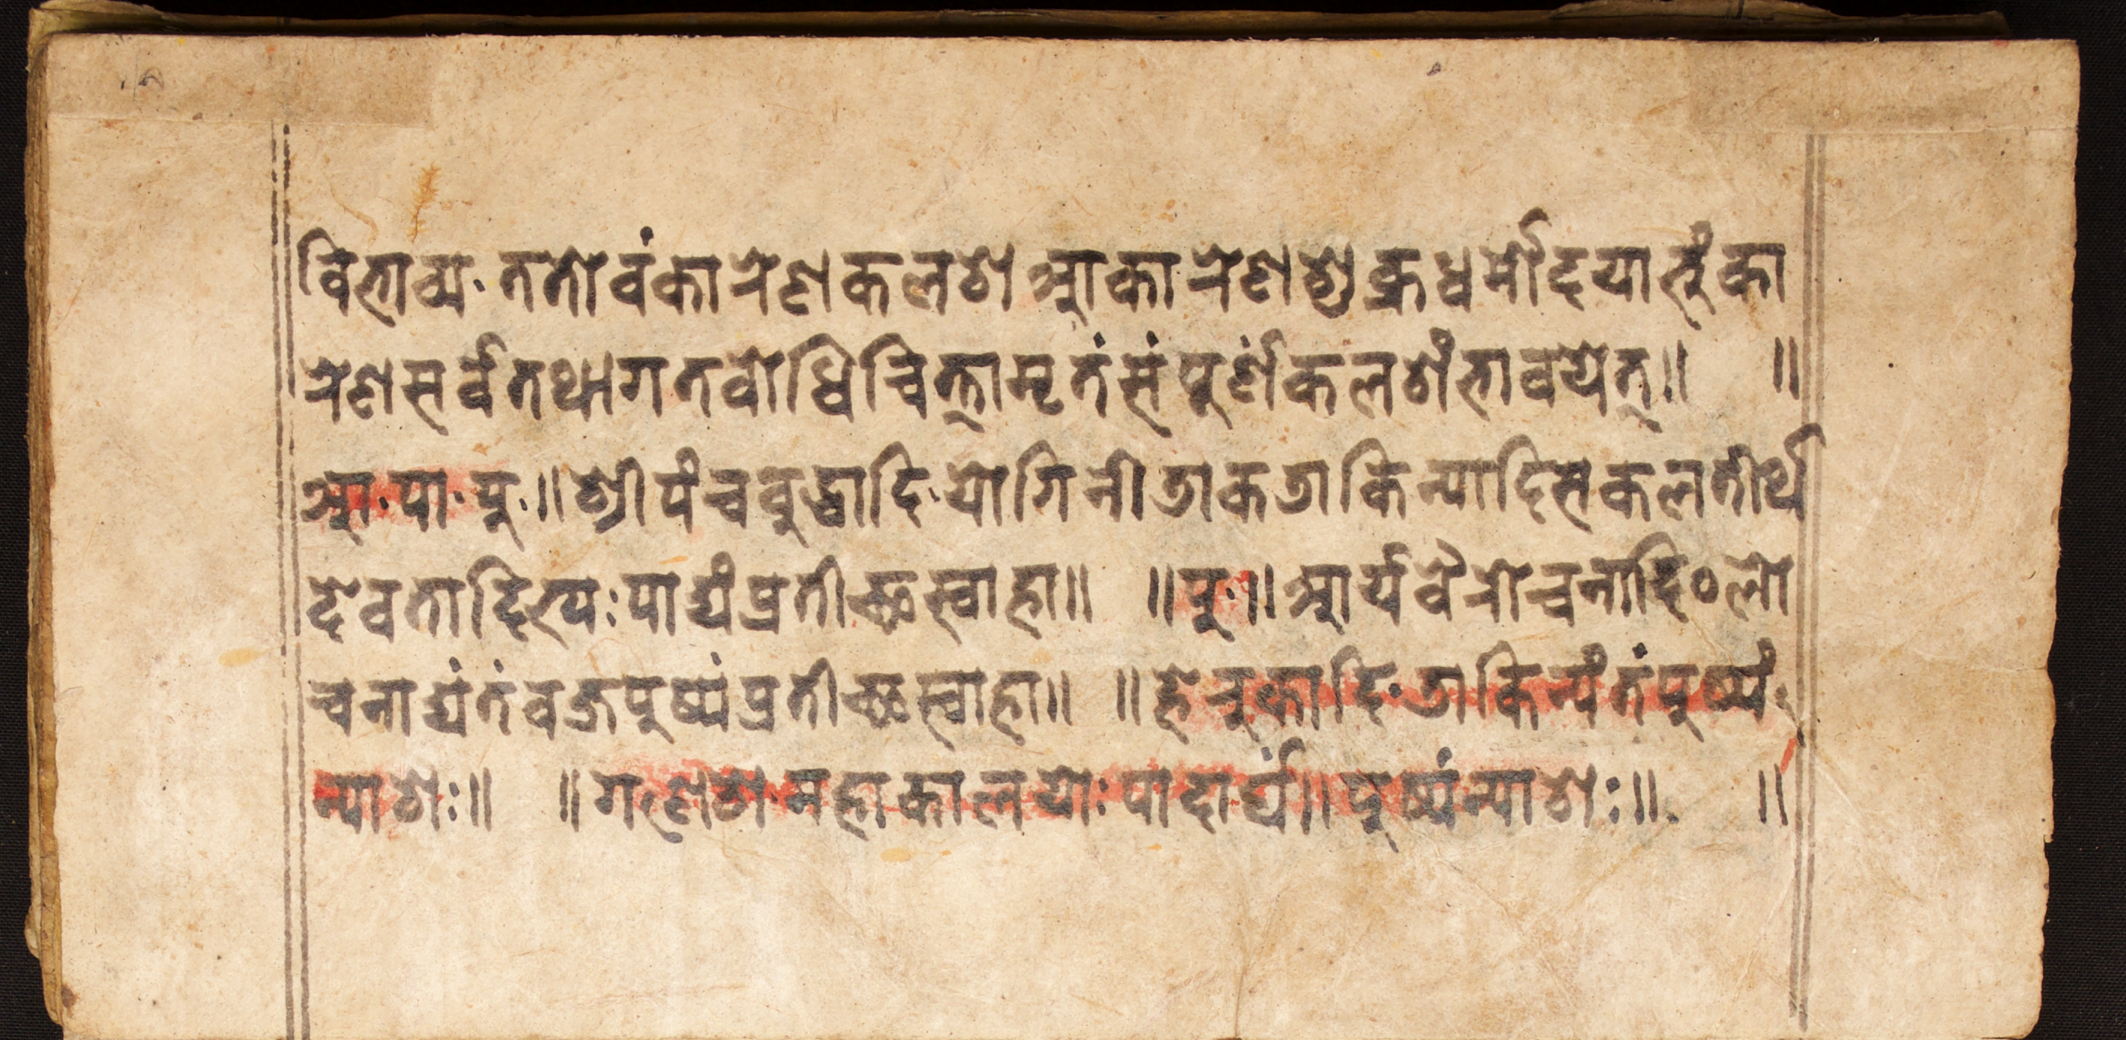 विभाव्य · ततो वंकारेण कलशे आकारेण शुक्रधर्मोदया हुंका
रेण सर्वतथागतवोधिचित्तामृतं संपूर्णं कलशं भावयेत् ॥ ॥
आ · पा · पु · ॥ श्री पंचवुद्धादि · योगिनी डाकडाकिन्यादि सकलतीर्थ
देवतादिभ्यः पाद्यं प्रतीच्छ स्वाहा ॥ ॥ पु · ॥ आर्यवैरोचनादि॰ लो
चनाद्यंतं वज्रपुष्पं प्रतीच्छ स्वाहा ॥ ॥ हेरुकादि · डाकिन्यंतं पुष्पं
न्याशेः ॥ ॥ गणेश महाकालयोः पादार्घ्यं ॥ पुष्पं न्याशेः ॥ ॥